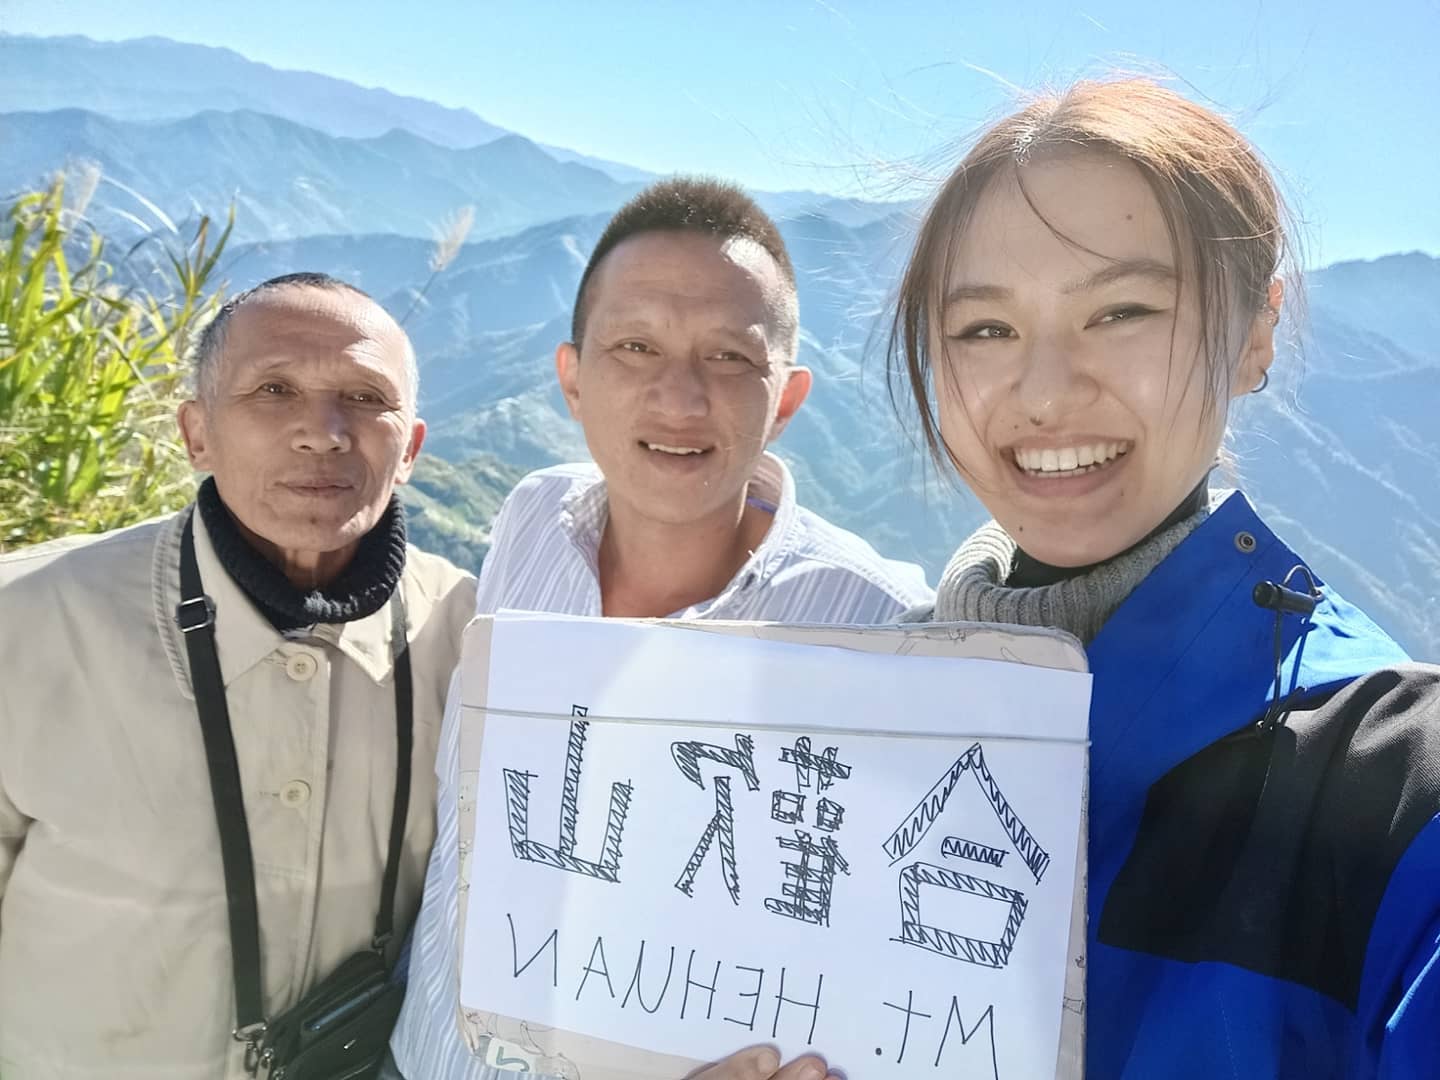 合歡山
Mt. HEHUAN